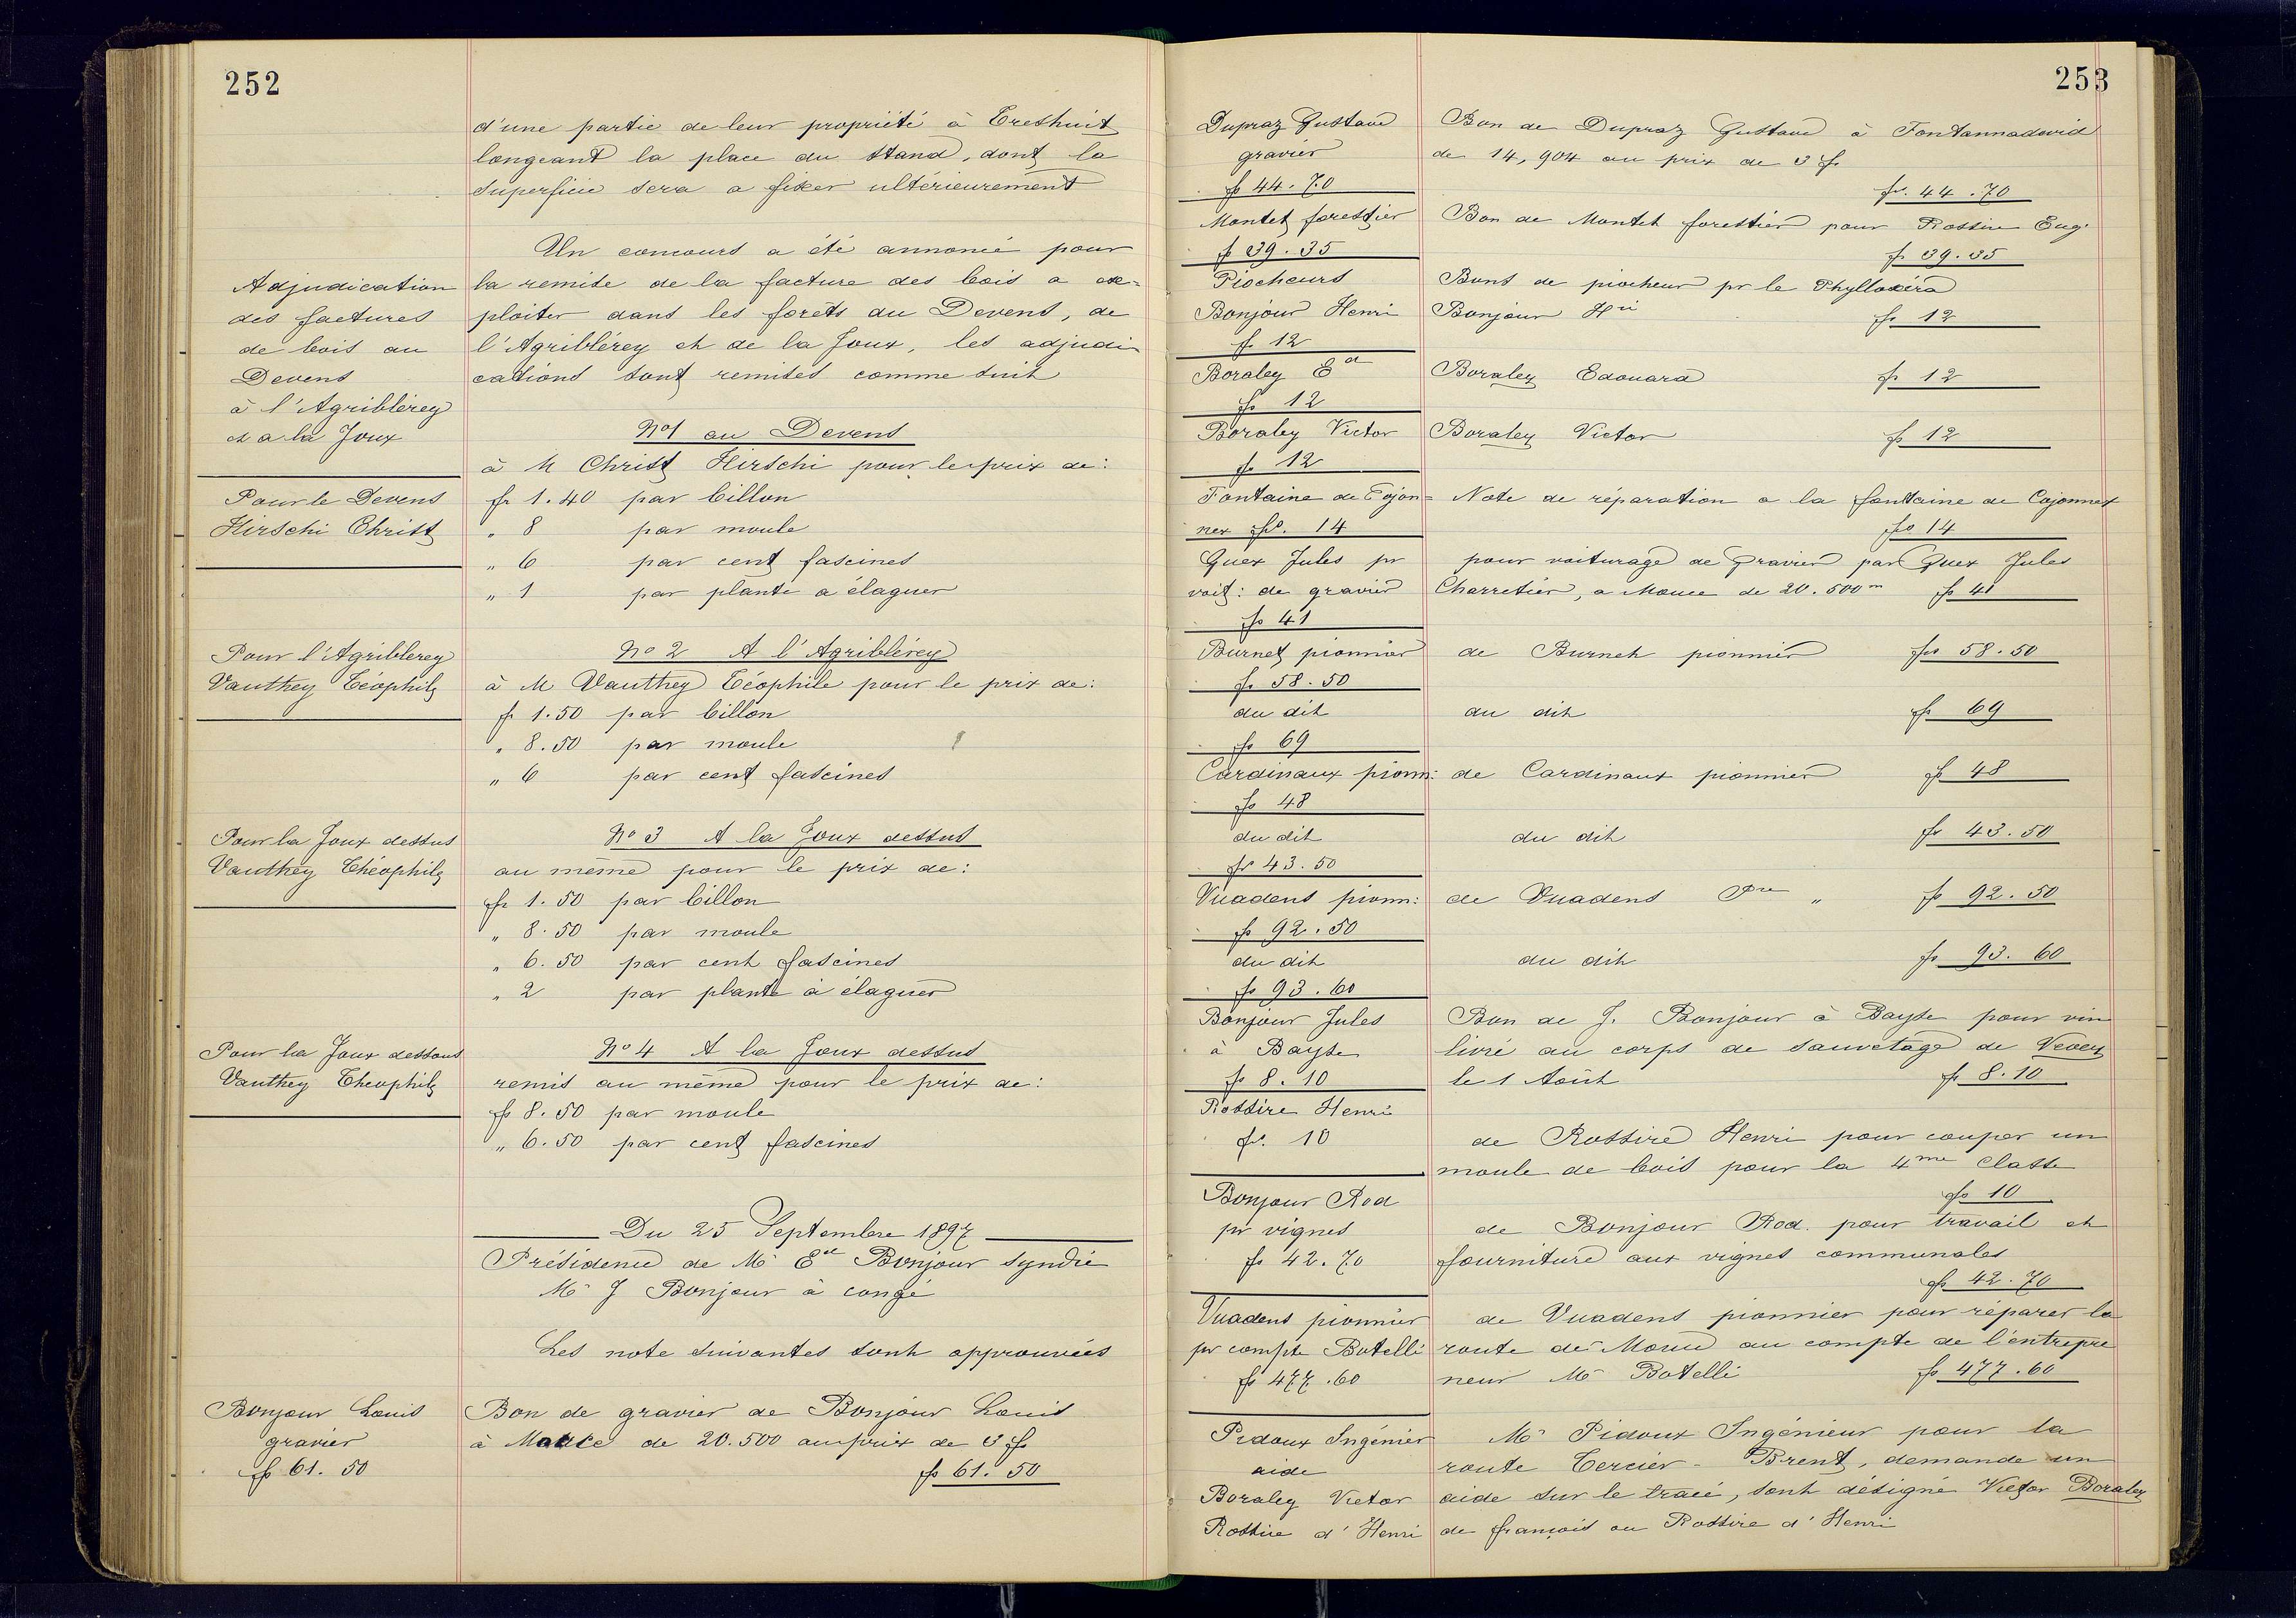 252
d'une partie de leur propriété à Treshuit
longeant la place du stand, dont la
superficie sera a fixer ultérieurement
Adjudication
des factures
de bois au
Devens
à l'Agriblérey
et a la Joux
Un concours a été annoncé pour
la remise de la facture des bois a ex=
ploiter dans les forêts du Devens, de
l'Agriblérey et de la Joux, les adjudi
cations sont remises comme suit
No1 au Devens
à M Christ Hirschi pour le prix de:
Pour le Devens
Hirschi Christ
fr 1.40 par billon
" 8 par moule
" 6 par cent fascines
" 1 par plante à élaguer
Pour l'Agriblerey
Vauthey Téophile
No 2 A l'Agriblérey
à M Vauthey Téophile pour le prix de:
fr 1.50 par billon
" 8.50 par moule
" 6 par cent fascines
Pour la Joux dessus
Vauthey Théophile
No 3 A la Joux dessus
au même pour le prix de:
fr 1.50 par billon
" 8.50 par moule
" 6.50 par cent fascines
" 2 par plante à élaguer
Pour la Joux dessous
Vauthey Theophile
No 4 A la Joux dessus
remis au même pour le prix de:
fr 8.50 par moule
" 6.50 par cent fascines
Du 25 Septembre 1897
Présidence de Mr Ed Bonjour syndic
Mr J Bonjour à congé
Les note suivantes sont approuvées
Bonjour Louis
gravier
fr 61.50
Bon de gravier de Bonjour Louis
à de 20.500 au prix de 3 fr
fr 61.50
253
Dupraz Gustave
gravier
fr 44.70
Bon de Dupraz Gustave à Fontannadavid
de 14,904 au prix de 3 fr
fr. 44.70
Montet forestier
fr 39.35
Bon de Montet forestier pour Rossire Eug.
fr 39.35
Piocheurs
Bonjour Henri
fr 12
Bons de piocheur pr le Phylloxéra
Bonjour Hri fr 12
Boraley Ed
fr 12
Boraley Edouard fr 12
Boraley Victor
fr 12
Boraley Victor fr 12
Fontaine de Cojon=
nex fr. 14
Note de réparation a la fontaine de Cojonnex
fr 14
Quex Jules pr
voit: de gravier
fr 41
pour voiturage de Gravier par Quex Jules
Charretier, a de 20.500 m fr 41
Burnet pionnier
fr 58.50
de Burnet pionnier fr 58.50
du dit
fr 69
du dit fr 69
Cardinaux pionn:
fr 48
de Cardinaux pionnier fr 48
du dit
fr 43.50
du dit fr 43.50
Vuadens pionn:
fr 92.50
de Vuadens " fr 92.50
du dit
fr 93.60
du dit fr 93.60
Bonjour Jules
à Bayse
fr 8.10
Bon de J. Bonjour à Bayse pour vin
livré au corps de sauvetage de Vevey
le 1 Août fr 8.10
Rossire Henri
fr. 10
de Rossire Henri pour couper un
moule de bois pour la 4me classe
fr 10
Bonjour Rod
pr vignes
fr 42.70
de Bonjour Rod. pour travail et
fourniture aux vignes communales
fr 42.70
Vuadens pionnier
pr compte Botelli
fr 477.60
de Vuadens pionnier pour réparer la
route de au compte de l'entrepre
neur Mr Botelli fr 477.60
Pidoux Ingénier
aide
Boraley Victor
Rossire d'Henri
Mr Pidoux Ingénieur pour la
route Tercier - Brent, demande un
aide sur le tracé, sont désigné Victor Boraley
de françois ou Rossire d'Henri